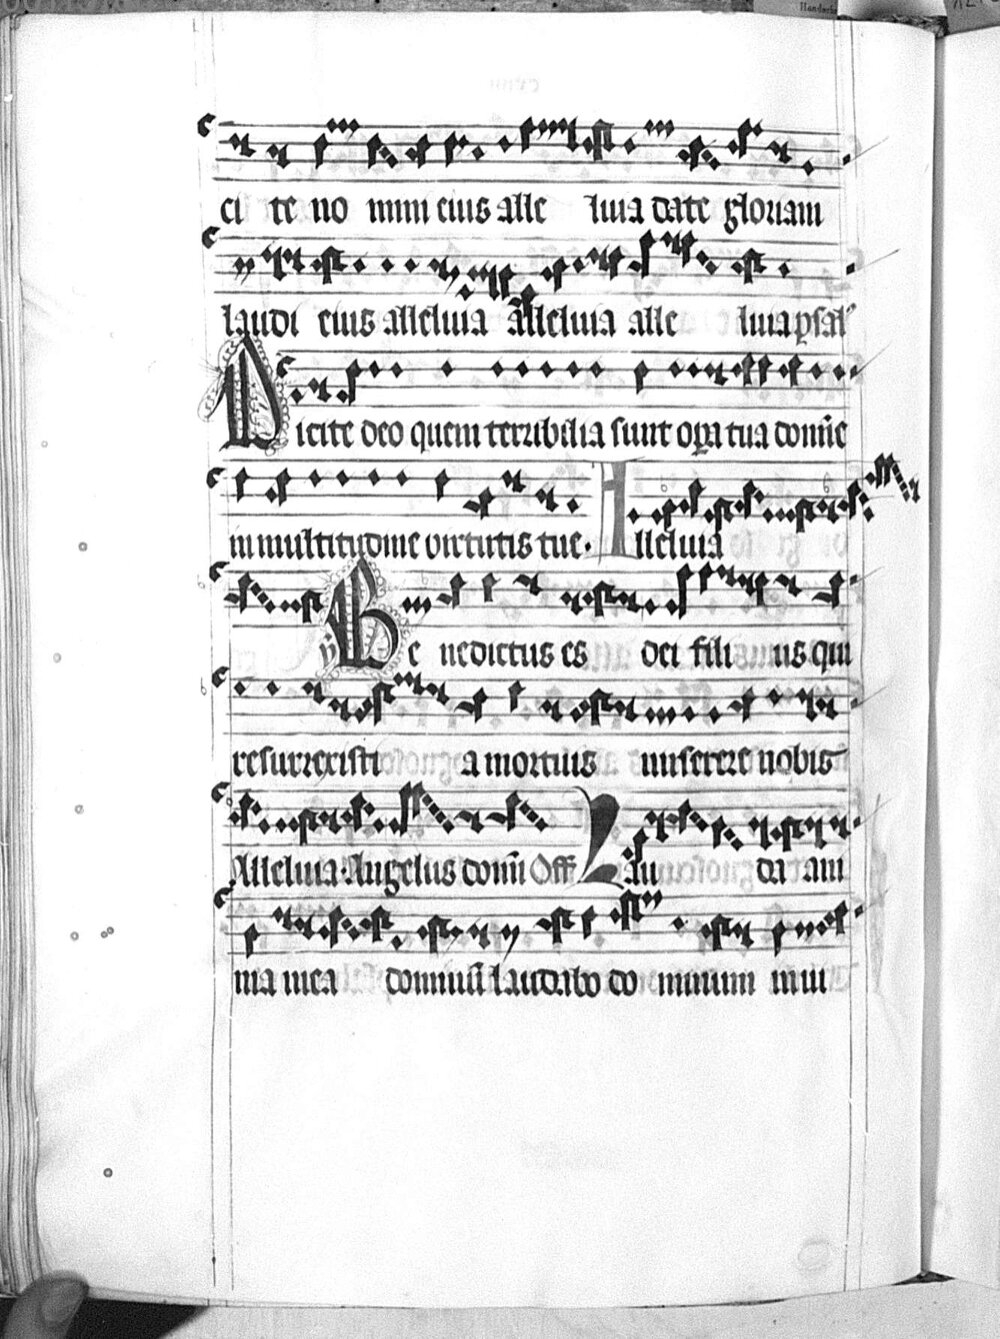 ci te no mini eius alle luia date gloriam
laudi eius alleluia alleluia alle luia psal
Dicite deo quem terribilia sunt opa tua domine
in multitudine virtutis tue. Alleluia
Be nedictus es dei fili us qui
resurrexisti a mortuis miserere nobis
Alleluia. Angelus domi Off Lau da ani
ma mea dominu laudabo do minum in ui